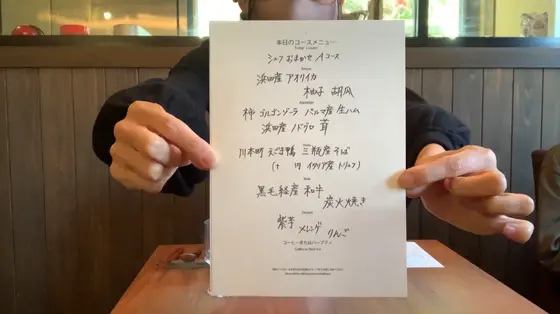 本日のコースメニュー
シェフおまかせ Aコース
浜田産 アオリイカ
柚子 胡瓜
柿 ゴルゴンゾーラ パルマ産 生ハム
浜田産 ノドグロ 茸
川本町 えごま鴨 三瓶産 そば
(+ 円 イタリア産 トリュフ)
黒毛経産 和牛
炭火焼き
Dessert
紫芋 メレンゲ りんご
コーヒーまたはハーブティ